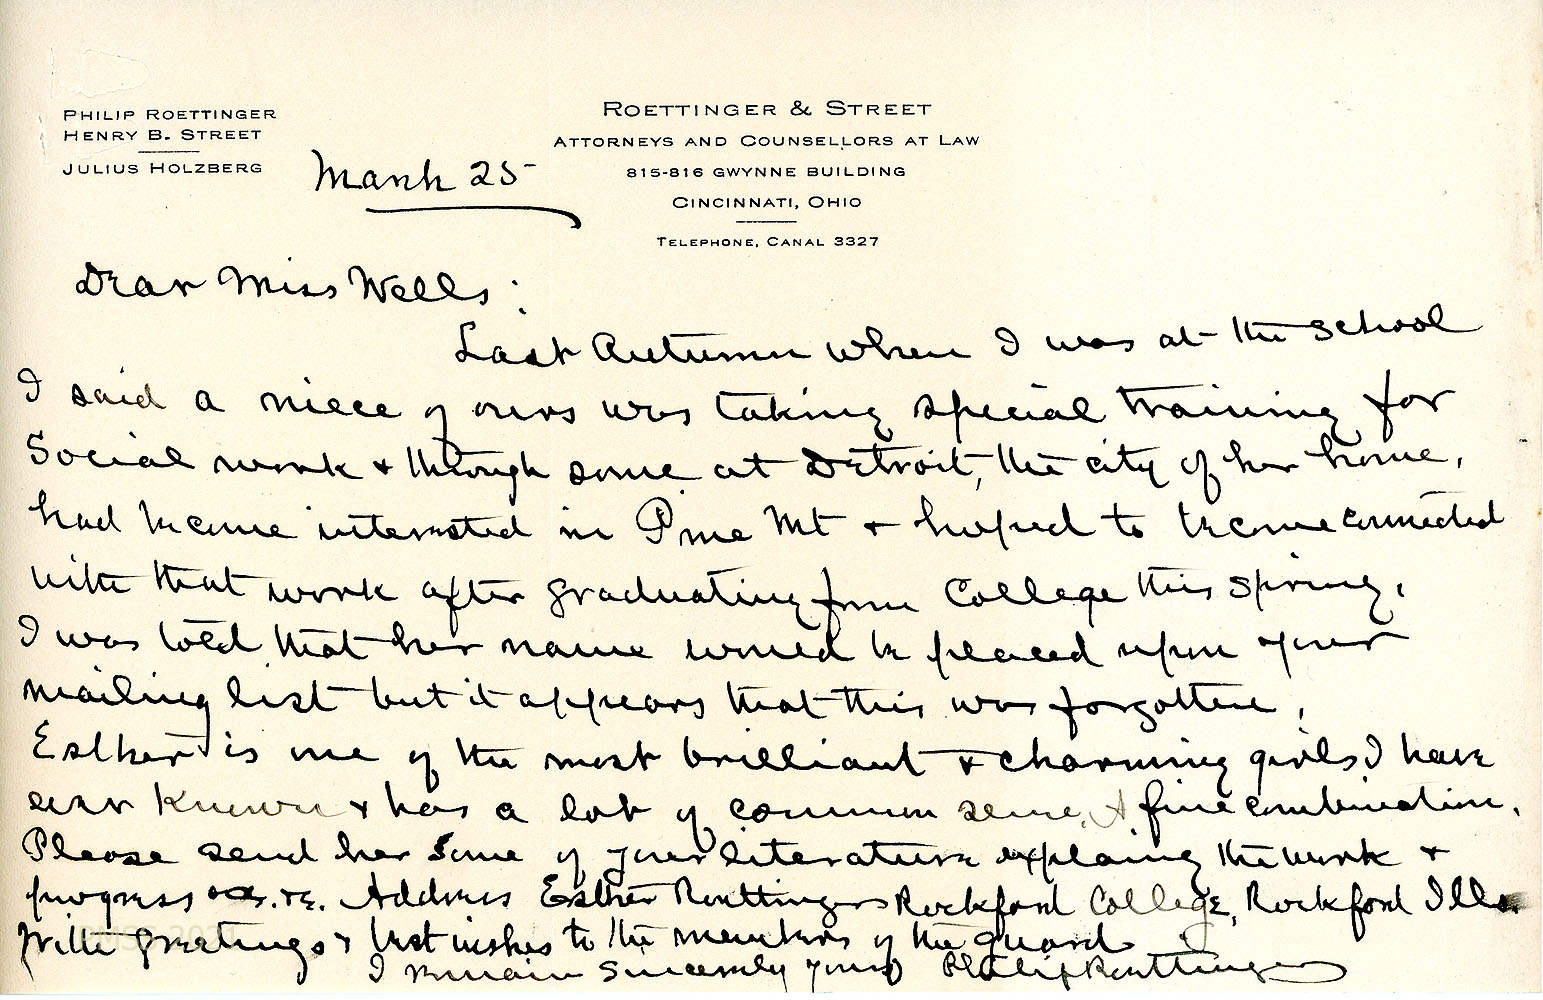 PHILIP ROETTINGER
HENRY B. STREET
JULIUS HOLZBERG
ROETTINGER & STREET
ATTORNEYS AND COUNSELLORS AT LAW
815-816 GWYNNE BUILDING
CINCINNATI, OHIO
TELEPHONE, CANAL 3327
March 25
Dear Miss Wells:
Last Autumn when I was at the School
I said a niece of ours was taking special training for
Social work & through some at Detroit, the city of her home,
had become interested in Pine Mt & hoped to become connected
with that work after graduating from College this spring.
I was told that her name would be placed upon your
mailing list but it appears that this was forgotten.
Esther is one of the most brilliant & charming girls I have
ever known & has a lot of common sense. A fine combination.
Please send her some of your literature explaing the work &
progress Address Esther Roettinger Rockford College, Rockford Ills.
With greetings & best wishes to the members of the guard
I remain sincerely yours Philip Roettinger